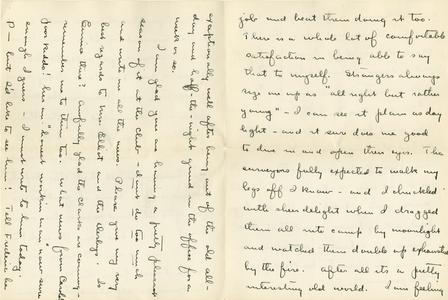 job and beat them doing it too.
There is a whole lot of comfortable
satisfaction in being able to say
that to myself. Strangers always
size me up as "all right but rather
young" - I can see it plain as day
light - and it sure does me good
to dive in and open their eyes. The
surveyors fully expected to walk my
legs off I know - and I chuckled
with sheer delight when I dragged
them all into camp by moonlight
and watched them double up exhausted
by the fire. After all its a pretty
interesting old world. I am feeling
exceptionally well after being out of the old all-
day and half the-night grind in the office for a
week or so.
I am glad you are having a pretty pleasant
season of it at the Club - dont do too much
and write me all the news. Please give my very
best regards to Mrs Elliot and the Is
Emma there? Awfully glad the Clarks are coming -
remember me to them too. What news from
Poor Kiddo! hes an "honest workin man" now sure
enough I guess - I must write to him today.
P- but Id like to see him! Tell Frederic he